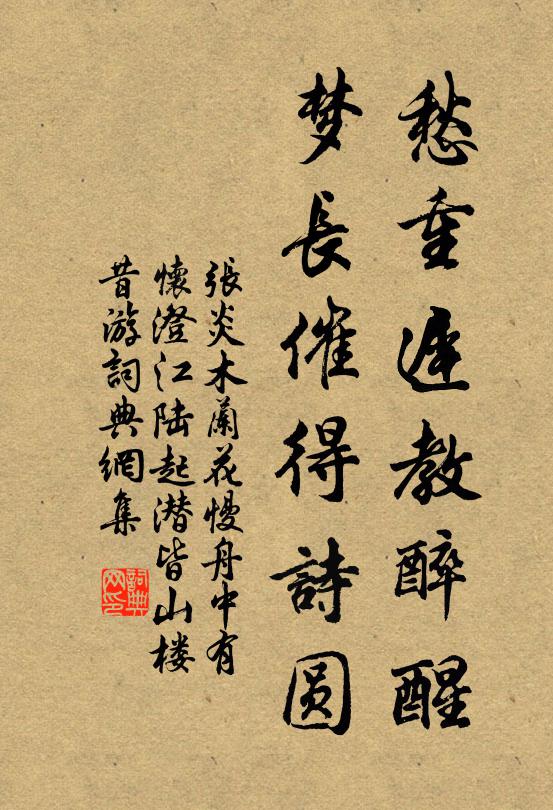 愁重遲教醉醒
梦長催得詩圆
張炎木蘭花慢舟中有
懷澄江陆起潜皆山楼
昔游詞典網集
詞典
网印